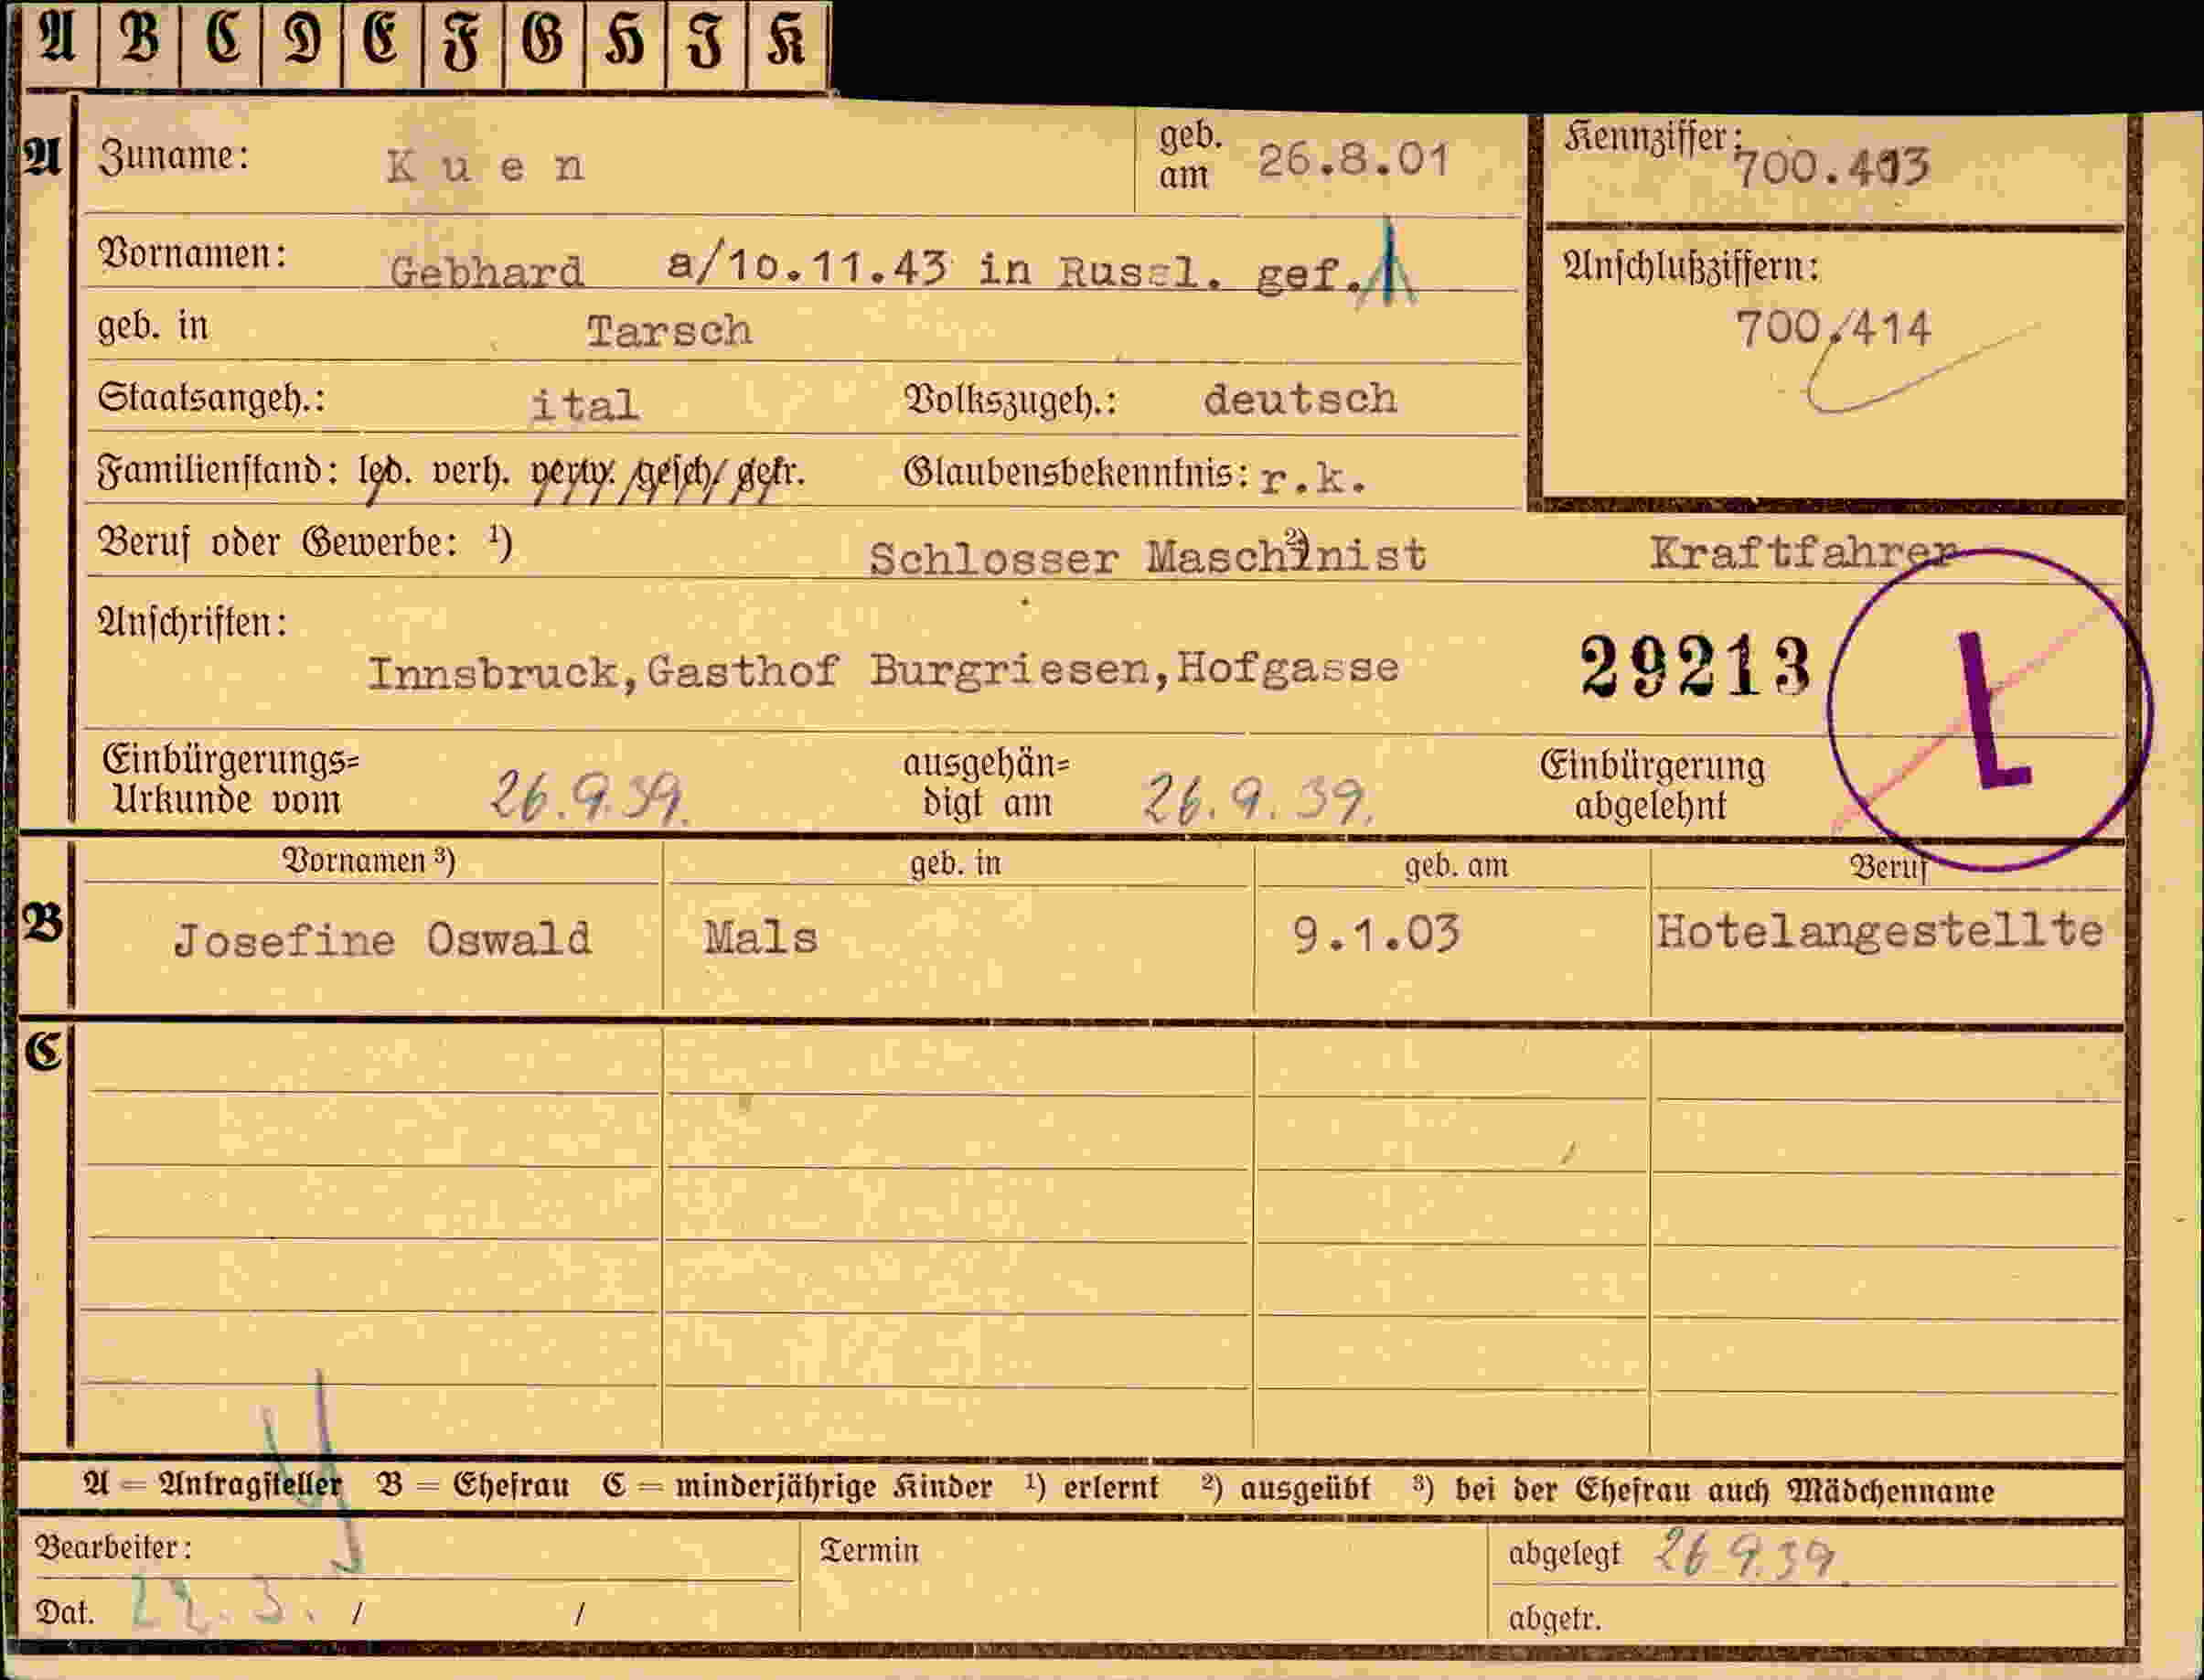 A B C D E F G H I K
A Zuname: Kuen geb. am 26.8.01 Kennziffer: 700.413
Vornamen: Gebhard a/10.11.43 in Russl. gef.
Anschlußziffern:
700/414
geb. in Tarsch
Staatsangeh.: ital Volkszugeh.: deutsch
Familienstand: led. verh. verw. gesch. getr. Glaubensbekenntnis: r.k.
Beruf oder Gewerbe: ¹) Schlosser Maschinist ²) Kraftfahrer
Anschriften:
Innsbruck, Gasthof Burgriesen, Hofgasse 29213 L
Einbürgerungs= Urkunde vom 26.9.39. ausgehän= digt am 26.9.39. Einbürgerung abgelehnt
Vornamen ³) geb. in geb. am Beruf
B Josefine Oswald Mals 9.1.03 Hotelangestellte
C
A = Antragsteller B = Ehefrau C = minderjährige Kinder ¹) erlernt ²) ausgeübt ³) bei der Ehefrau auch Mädchenname
Bearbeiter: Termin abgelegt 26.9.39
Dat. / / abgetr.